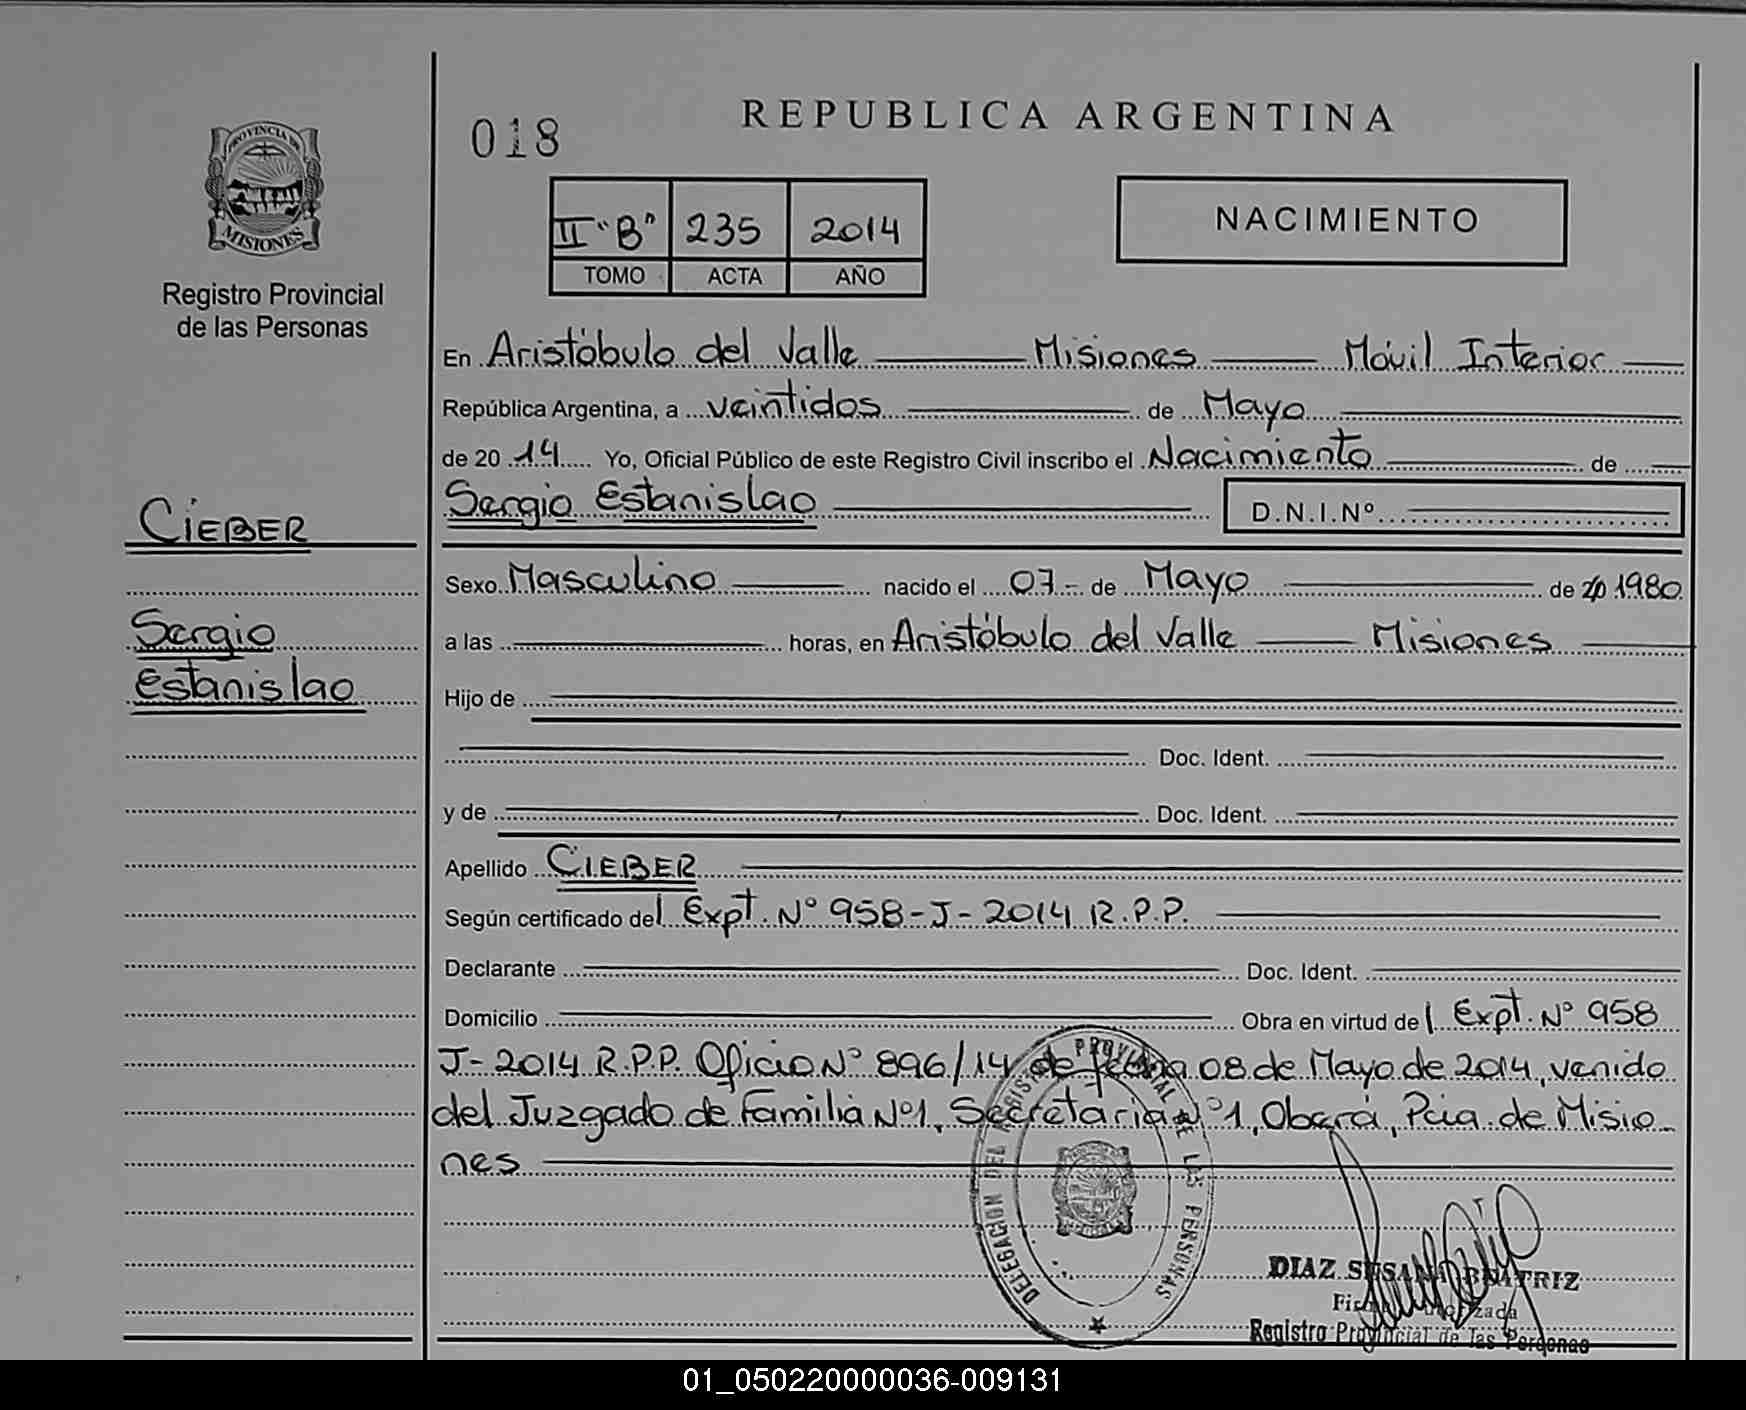 018
REPUBLICA ARGENTINA
PROVINCIA DE
MISIONES
Registro Provincial
de las Personas
II "B" 235 2014
TOMO ACTA AÑO
NACIMIENTO
En Aristóbulo del Valle Misiones Móvil Interior
República Argentina, a veintidos de Mayo
de 20 14 Yo, Oficial Público de este Registro Civil inscribo el Nacimiento de
Sergio Estanislao D.N.I.Nº
CIEBER
Sergio
Estanislao
Sexo Masculino nacido el 07 - de Mayo de 1980
a las horas, en Aristóbulo del Valle Misiones
Hijo de
Doc. Ident.
y de Doc. Ident.
Apellido CIEBER
Según certificado del Expt. Nº 958-J-2014 R.P.P.
Declarante Doc. Ident.
Domicilio Obra en virtud del Expt. Nº 958
J-2014 R.P.P. Oficio Nº 896/14 de fecha 08 de Mayo de 2014, venido
del Juzgado de Familia Nº1, Secretaria Nº1, Oberá, Pcia. de Misio
nes
DELEGACION DEL REGISTRO PROVINCIAL DE LAS PERSONAS
DIAZ SUSANA BEATRIZ
Registro Provincial de las Personas
01_050220000036-009131